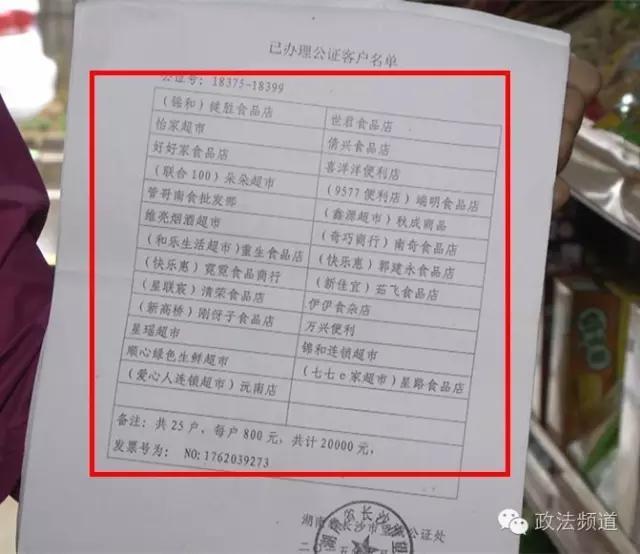 已办理公证客户名单
公证号：18375-18399
（锦和）健胜食品店 世君食品店
怡家超市 信兴食品店
好好家食品店 喜洋洋便利店
（联合100）朵朵超市 （9577便利店）端明食品店
管哥南食批发部 （鑫源超市）秋成商品
维亮烟酒超市 （奇巧商行）南奇食品店
（和乐生活超市）董生食品店 （快乐惠）郭建永食品店
（快乐惠）霓霓食品商行 （新佳宜）茹飞食品店
（星联宸）清荣食品店 伊伊食杂店
（新高桥）刚伢子食品店 万兴便利
星瑶超市 锦和连锁超市
顺心绿色生鲜超市 （七七e家超市）星路食品店
（爱心人连锁超市）沅南店
备注：共25户，每户800元，共计20000元，
发票号为： NO:1762039273
湖南省长沙市 公证处
政法频道